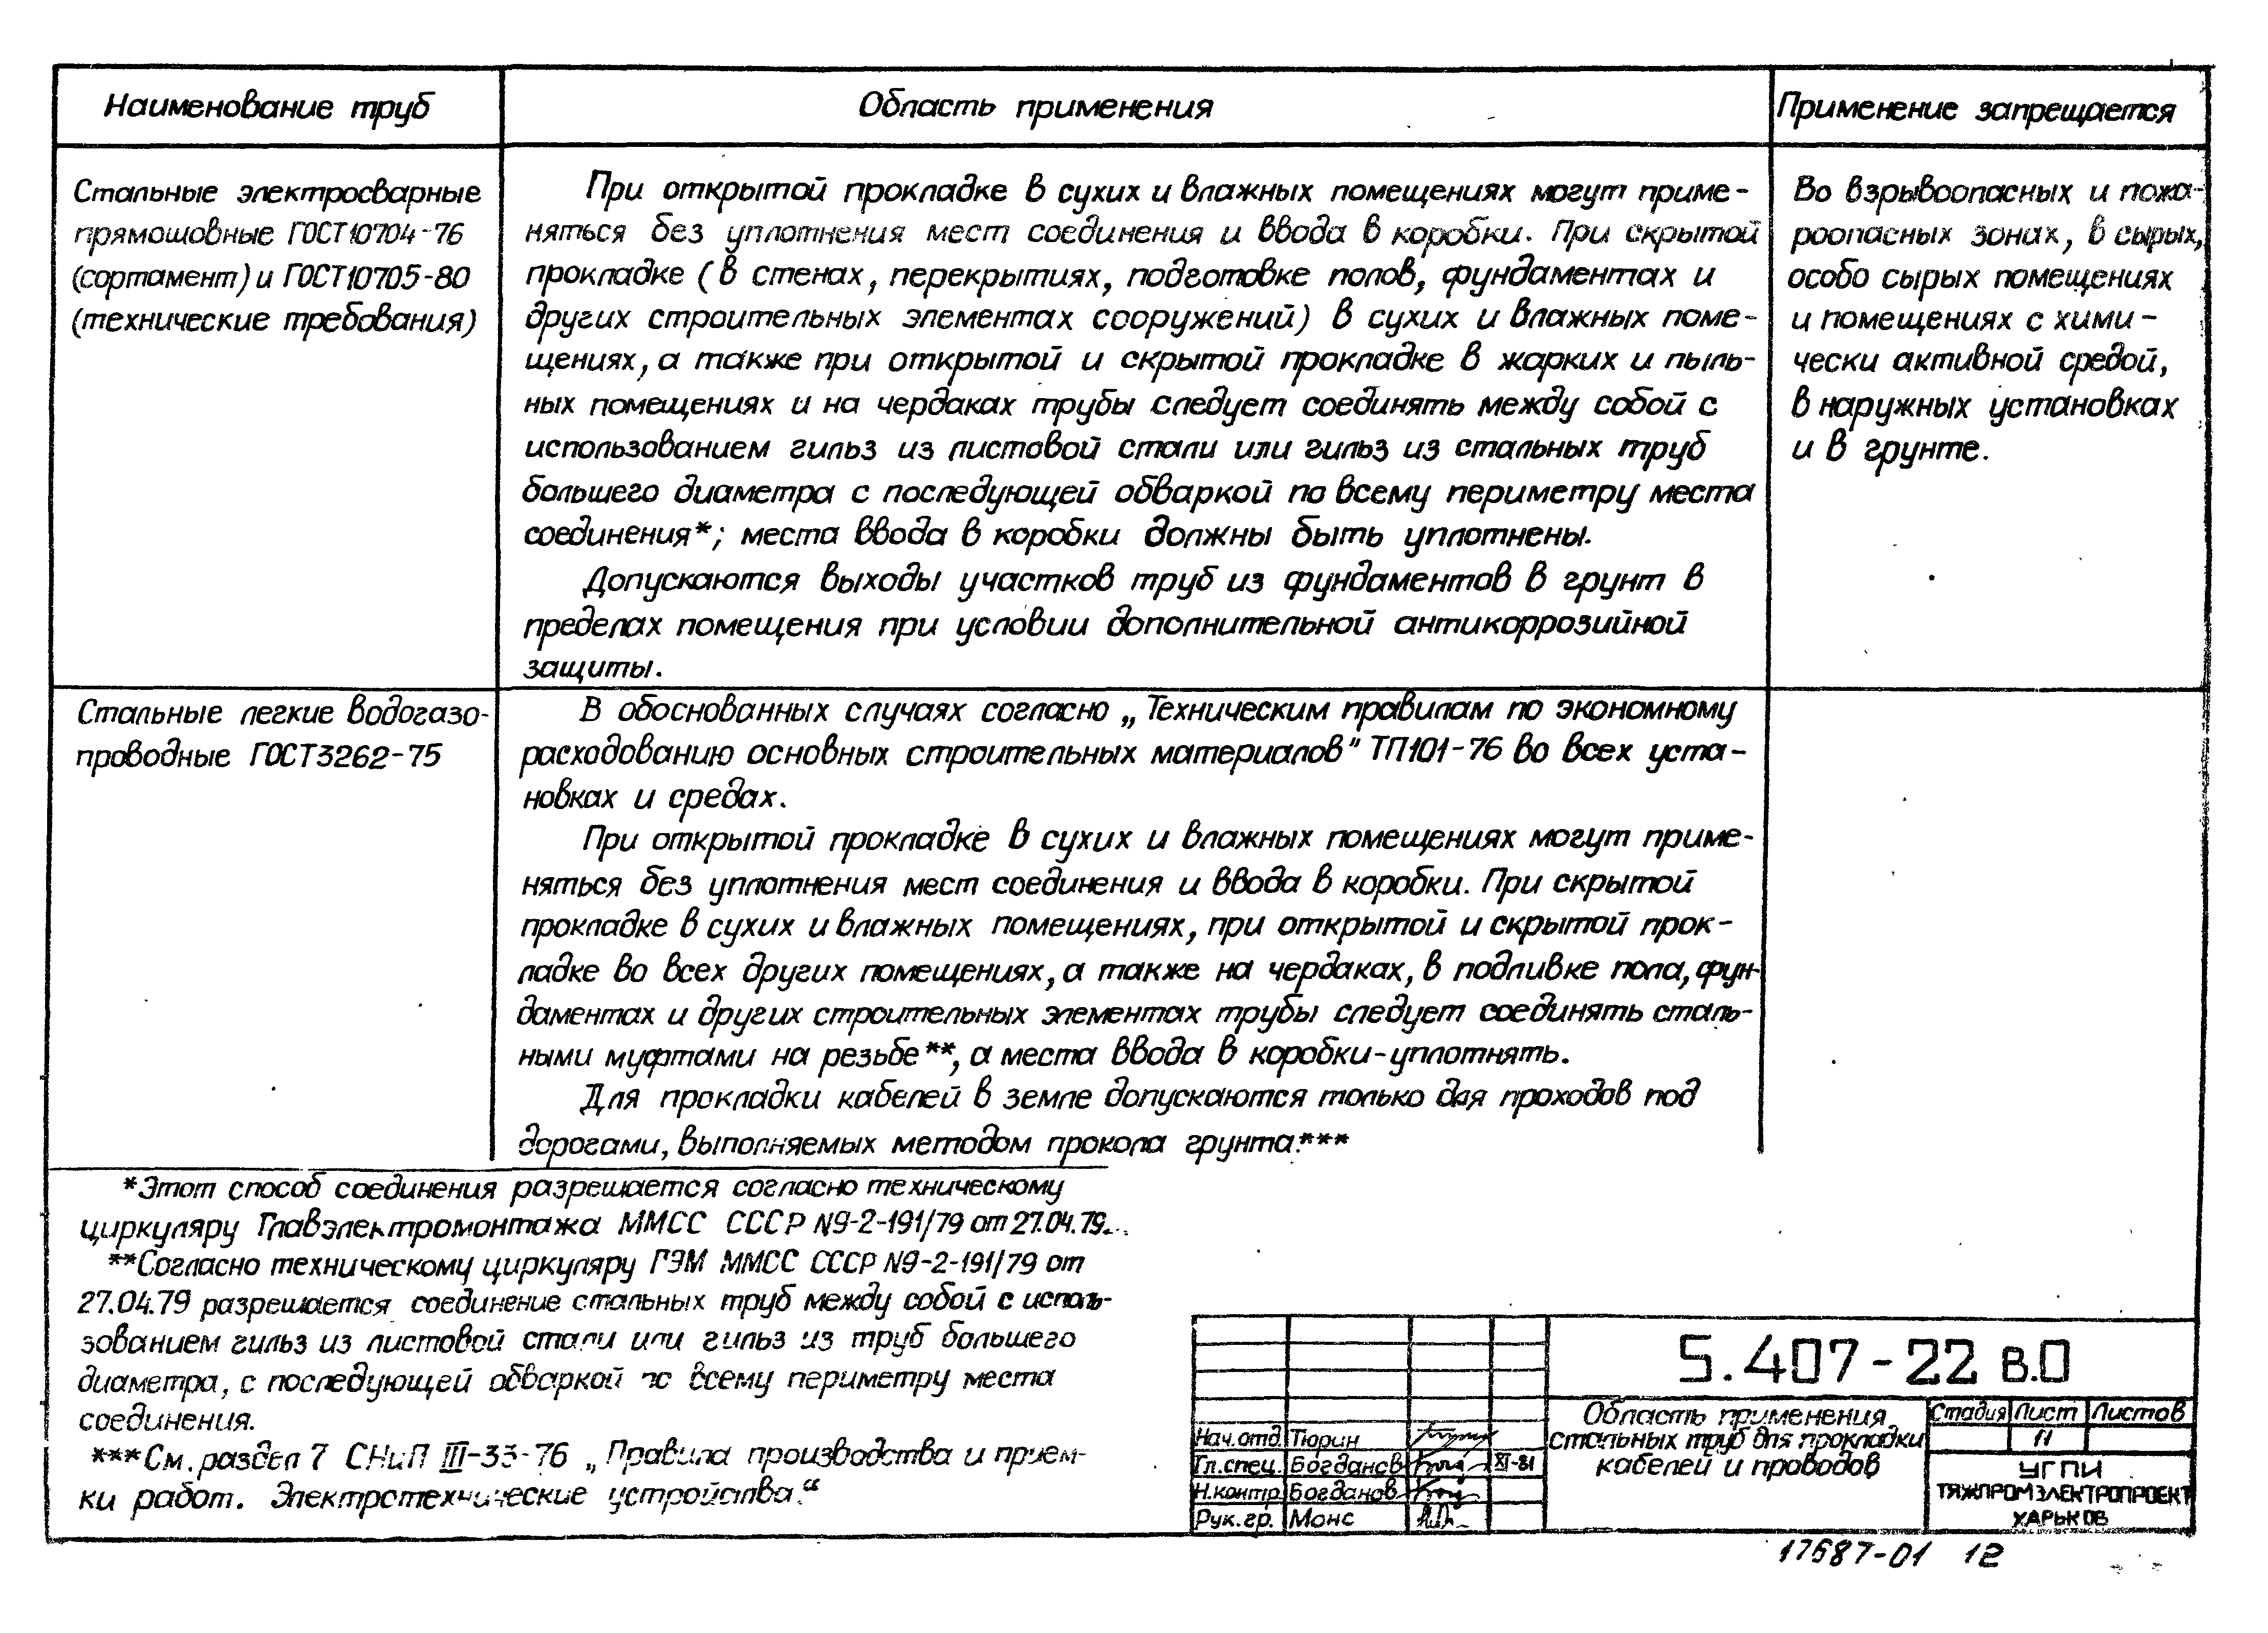 Наименование труб
Область применения
Применение запрещается
Стальные электросварные
прямошовные ГОСТ10704-76
(сортамент) и ГОСТ10705-80
(технические требования)
При открытой прокладке в сухих и влажных помещениях могут приме-
няться без уплотнения мест соединения и ввода в коробки. При скрытой
прокладке (в стенах, перекрытиях, подготовке полов, фундаментах и
других строительных элементах сооружений) в сухих и влажных поме-
щениях, а также при открытой и скрытой прокладке в жарких и пыль-
ных помещениях и на чердаках трубы следует соединять между собой с
использованием гильз из листовой стали или гильз из стальных труб
большего диаметра с последующей обваркой по всему периметру места
соединения*; места ввода в коробки должны быть уплотнены.
Допускаются выходы участков труб из фундаментов в грунт в
пределах помещения при условии дополнительной антикоррозийной
защиты.
Во взрывоопасных и пожа-
роопасных зонах, в сырых,
особо сырых помещениях
и помещениях с хими-
чески активной средой,
в наружных установках
и в грунте.
Стальные легкие водогазо-
проводные ГОСТ3262-75
В обоснованных случаях согласно „Техническим правилам по экономному
расходованию основных строительных материалов" ТП101-76 во всех уста-
новках и средах.
При открытой прокладке в сухих и влажных помещениях могут приме-
няться без уплотнения мест соединения и ввода в коробки. При скрытой
прокладке в сухих и влажных помещениях, при открытой и скрытой прок-
ладке во всех других помещениях, а также на чердаках, в подливке пола, фун-
даментах и других строительных элементах трубы следует соединять сталь-
ными муфтами на резьбе**, а места ввода в коробки-уплотнять.
Для прокладки кабелей в земле допускаются только для проходов под
дорогами, выполняемых методом прокола грунта.***
*Этот способ соединения разрешается согласно техническому
циркуляру Главэлектромонтажа ММСС СССР N9-2-191/79 от 27.04.79.
**Согласно техническому циркуляру ГЭМ ММСС СССР N9-2-191/79 от
27.04.79 разрешается соединение стальных труб между собой с исполь-
зованием гильз из листовой стали или гильз из труб большего
диаметра, с последующей обваркой по всему периметру места
соединения.
***См. раздел 7 СНиП III-33-76 „Правила производства и прием-
ки работ. Электротехнические устройства."
5.407-22 в.0
Область применения
стальных труб для прокладки
кабелей и проводов
Стадия Лист Листов
11
УГПИ
ТЯЖПРОМЭЛЕКТРОПРОЕКТ
ХАРЬКОВ
Нач.отд. Тюрин
Гл.спец. Богданов XI-81
Н.контр. Богданов
Рук.гр. Монс
17687-01 12